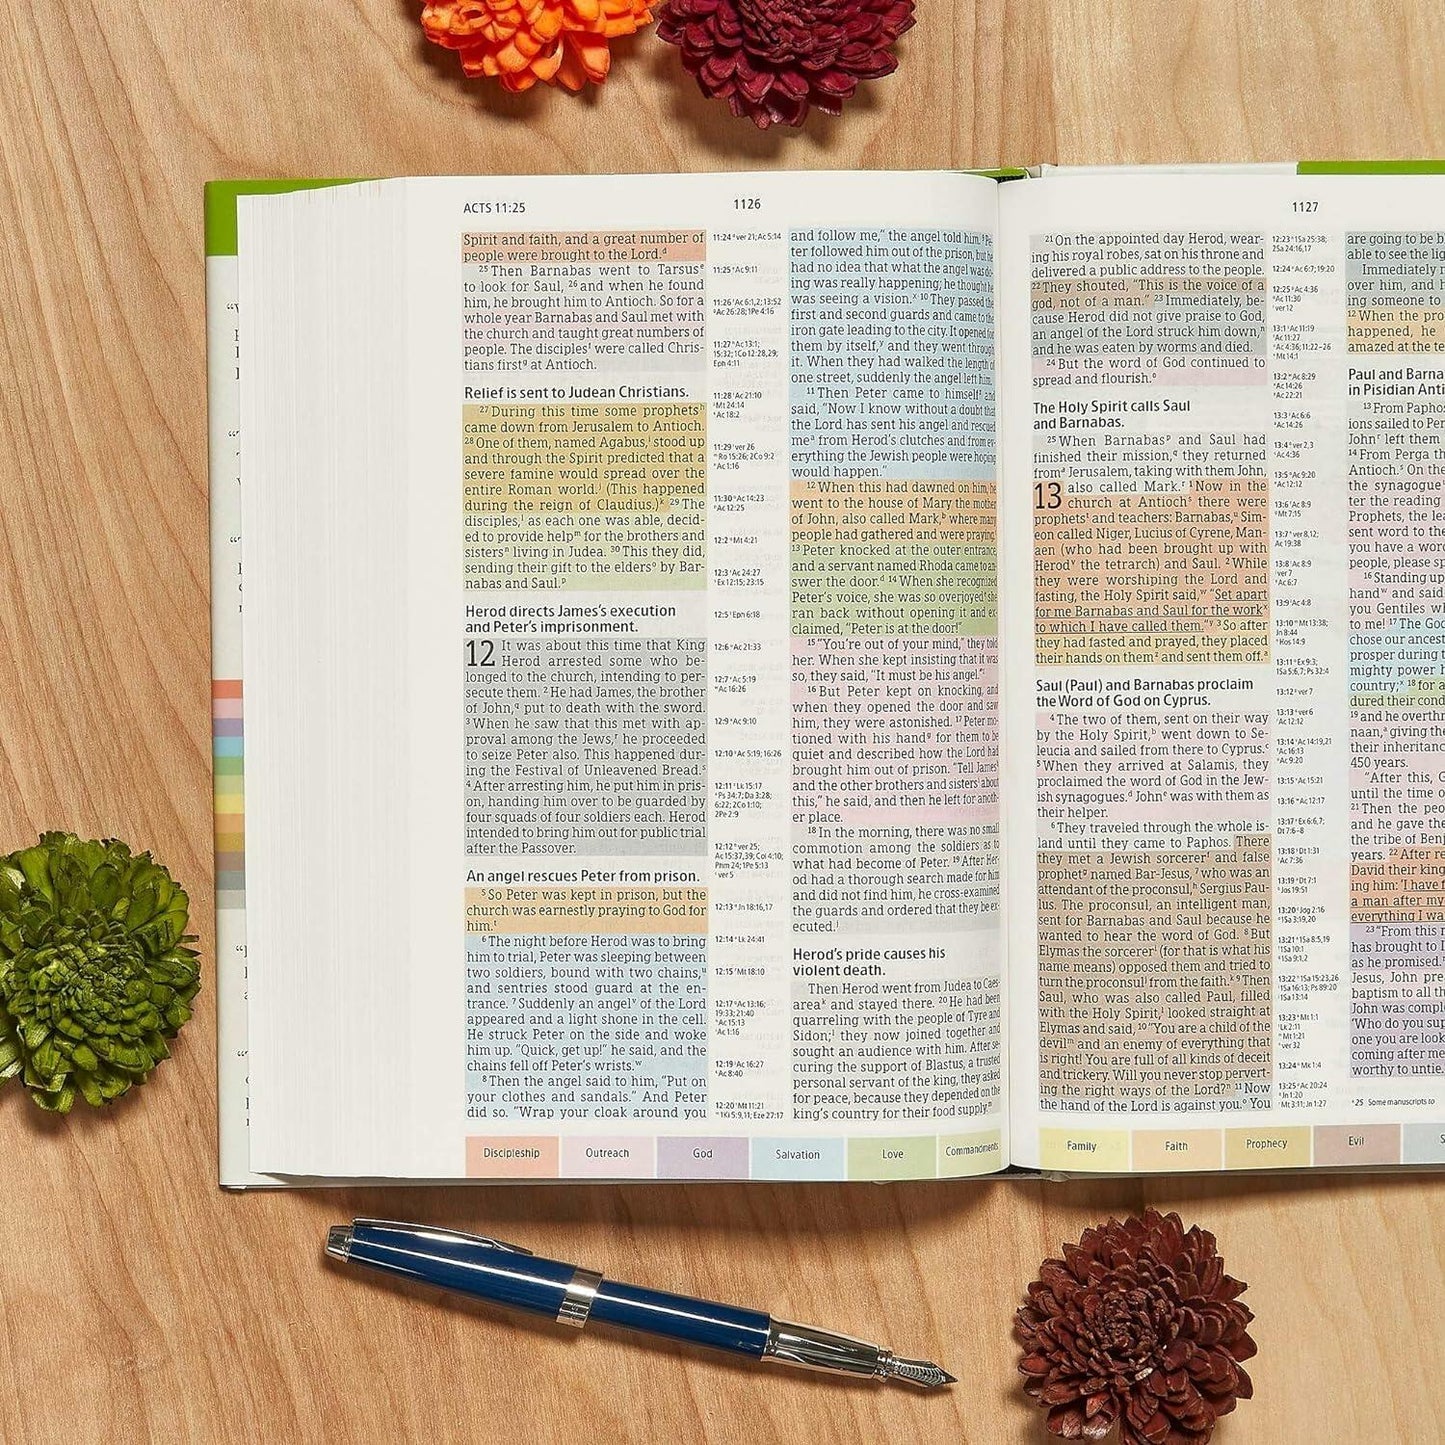 ACTS 11:25
1126
Spirit and faith, and a great number of
people were brought to the Lord.ᵈ
²⁵Then Barnabas went to Tarsusᵉ
to look for Saul, ²⁶and when he found
him, he brought him to Antioch. So for a
whole year Barnabas and Saul met with
the church and taught great numbers of
people. The disciplesᶠ were called Chris-
tians firstᵍ at Antioch.
Relief is sent to Judean Christians.
²⁷During this time some prophetsʰ
came down from Jerusalem to Antioch.
²⁸One of them, named Agabus,ⁱ stood up
and through the Spirit predicted that a
severe famine would spread over the
entire Roman world.ʲ (This happened
during the reign of Claudius.)ᵏ ²⁹The
disciples,ˡ as each one was able, decid-
ed to provide helpᵐ for the brothers and
sistersⁿ living in Judea. ³⁰This they did,
sending their gift to the eldersᵒ by Bar-
nabas and Saul.ᵖ
Herod directs James's execution
and Peter's imprisonment.
12 It was about this time that King
Herod arrested some who be-
longed to the church, intending to per-
secute them. ²He had James, the brother
of John,q put to death with the sword.
³When he saw that this met with ap-
proval among the Jews,ʳ he proceeded
to seize Peter also. This happened dur-
ing the Festival of Unleavened Bread.ˢ
⁴After arresting him, he put him in pris-
on, handing him over to be guarded by
four squads of four soldiers each. Herod
intended to bring him out for public trial
after the Passover.
An angel rescues Peter from prison.
⁵So Peter was kept in prison, but the
church was earnestly praying to God for
him.ᵗ
⁶The night before Herod was to bring
him to trial, Peter was sleeping between
two soldiers, bound with two chains,ᵘ
and sentries stood guard at the en-
trance. ⁷Suddenly an angelᵛ of the Lord
appeared and a light shone in the cell.
He struck Peter on the side and woke
him up. "Quick, get up!" he said, and the
chains fell off Peter's wrists.ʷ
⁸Then the angel said to him, "Put on
your clothes and sandals." And Peter
did so. "Wrap your cloak around you
11:24 ver 21; Ac 5:14
11:25 Ac 9:11
11:26 Ac 6:1,2; 13:52
Ac 26:28; 1Pe 4:16
11:27 Ac 13:1;
15:32; 1Co 12:28,29;
Eph 4:11
11:28 Ac 21:10
Mt 24:14
Ac 18:2
11:29 ver 26
Ro 15:26; 2Co 9:2
Ac 1:16
11:30 Ac 14:23
Ac 12:25
12:2 Mt 4:21
12:3 Ac 24:27
Ex 12:15; 23:15
12:5 Eph 6:18
12:6 Ac 21:33
12:7 Ac 5:19
Ac 16:26
12:9 Ac 9:10
12:10 Ac 5:19; 16:26
12:11 Lk 15:17
Ps 34:7; Da 3:28;
6:22; 2Co 1:10;
2Pe 2:9
12:12 ver 25;
Ac 15:37,39; Col 4:10;
Phm 24; 1Pe 5:13
ver 5
12:13 Jn 18:16,17
12:14 Lk 24:41
12:15 Mt 18:10
12:17 Ac 13:16;
19:33; 21:40
Ac 15:13
Ac 1:16
12:19 Ac 16:27
Ac 8:40
12:20 Mt 11:21
1Ki 5:9,11; Eze 27:17
and follow me," the angel told him. ⁹Pe-
ter followed him out of the prison, but he
had no idea that what the angel was do-
ing was really happening; he thought he
was seeing a vision.ˣ ¹⁰They passed the
first and second guards and came to the
iron gate leading to the city. It opened for
them by itself,ʸ and they went through
it. When they had walked the length of
one street, suddenly the angel left him.
¹¹Then Peter came to himselfᶻ and
said, "Now I know without a doubt that
the Lord has sent his angel and rescued
meᵃ from Herod's clutches and from ev-
erything the Jewish people were hoping
would happen."
¹²When this had dawned on him, he
went to the house of Mary the mother
of John, also called Mark,ᵇ where many
people had gathered and were praying.
¹³Peter knocked at the outer entrance,
and a servant named Rhoda came to an-
swer the door.ᵈ ¹⁴When she recognized
Peter's voice, she was so overjoyedᵉ she
ran back without opening it and ex-
claimed, "Peter is at the door!"
¹⁵"You're out of your mind," they told
her. When she kept insisting that it was
so, they said, "It must be his angel."ᶠ
¹⁶But Peter kept on knocking, and
when they opened the door and saw
him, they were astonished. ¹⁷Peter mo-
tioned with his handᵍ for them to be
quiet and described how the Lord had
brought him out of prison. "Tell James
and the other brothers and sistersʰ about
this," he said, and then he left for anoth-
er place.
¹⁸In the morning, there was no small
commotion among the soldiers as to
what had become of Peter. ¹⁹After Her-
od had a thorough search made for him
and did not find him, he cross-examined
the guards and ordered that they be ex-
ecuted.ⁱ
Herod's pride causes his
violent death.
Then Herod went from Judea to Caes-
areaᵏ and stayed there. ²⁰He had been
quarreling with the people of Tyre and
Sidon;ˡ they now joined together and
sought an audience with him. After se-
curing the support of Blastus, a trusted
personal servant of the king, they asked
for peace, because they depended on the
king's country for their food supply.ᵐ
Discipleship
Outreach
God
Salvation
Love
Commandments
1127
²¹On the appointed day Herod, wear-
ing his royal robes, sat on his throne and
delivered a public address to the people.
²²They shouted, "This is the voice of a
god, not of a man." ²³Immediately, be-
cause Herod did not give praise to God,
an angel of the Lord struck him down,ⁿ
and he was eaten by worms and died.
²⁴But the word of God continued to
spread and flourish.ᵒ
The Holy Spirit calls Saul
and Barnabas.
²⁵When Barnabasᵖ and Saul had
finished their mission,q they returned
from Jerusalem, taking with them John,
also called Mark.ʳ
13 ¹Now in the
church at Antiochˢ there were
prophetsᵗ and teachers: Barnabas,ᵘ Sim-
eon called Niger, Lucius of Cyrene, Man-
aen (who had been brought up with
Herodᵛ the tetrarch) and Saul. ²While
they were worshiping the Lord and
fasting, the Holy Spirit said,ʷ "Set apart
for me Barnabas and Saul for the workˣ
to which I have called them."ʸ ³So after
they had fasted and prayed, they placed
their hands on themᶻ and sent them off.ᵃ
Saul (Paul) and Barnabas proclaim
the Word of God on Cyprus.
⁴The two of them, sent on their way
by the Holy Spirit,ᵇ went down to Se-
leucia and sailed from there to Cyprus.ᶜ
⁵When they arrived at Salamis, they
proclaimed the word of God in the Jew-
ish synagogues.ᵈ Johnᵉ was with them as
their helper.
⁶They traveled through the whole is-
land until they came to Paphos. There
they met a Jewish sorcererᶠ and false
prophetᵍ named Bar-Jesus, ⁷who was an
attendant of the proconsul,ʰ Sergius Pau-
lus. The proconsul, an intelligent man,
sent for Barnabas and Saul because he
wanted to hear the word of God. ⁸But
Elymas the sorcererⁱ (for that is what his
name means) opposed them and tried to
turn the proconsulʲ from the faith.ᵏ ⁹Then
Saul, who was also called Paul, filled
with the Holy Spirit,ˡ looked straight at
Elymas and said, ¹⁰"You are a child of the
devilᵐ and an enemy of everything that
is right! You are full of all kinds of deceit
and trickery. Will you never stop pervert-
ing the right ways of the Lord?ⁿ ¹¹Now
the hand of the Lord is against you.ᵒ You
12:23 1Sa 25:38;
2Sa 24:16,17
12:24 Ac 6:7; 19:20
12:25 Ac 4:36
Ac 11:30
ver 12
13:1 Ac 11:19
Ac 11:27
Ac 4:36; 11:22-26
Mt 14:1
13:2 Ac 8:29
Ac 14:26
Ac 22:21
13:3 Ac 6:6
Ac 14:26
13:4 ver 2,3
Ac 4:36
13:5 Ac 9:20
Ac 12:12
13:6 Ac 8:9
Mt 7:15
13:7 ver 8,12;
Ac 19:38
13:8 Ac 8:9
ver 7
Ac 6:7
13:9 Ac 4:8
13:10 Mt 13:38;
Jn 8:44
Hos 14:9
13:11 Ex 9:3;
1Sa 5:6,7; Ps 32:4
13:12 ver 7
13:13 ver 6
Ac 12:12
13:14 Ac 14:19,21
Ac 16:13
Ac 9:20
13:15 Ac 15:21
13:16 Ac 12:17
13:17 Ex 6:6,7;
Dt 7:6-8
13:18 Dt 1:31
Ac 7:36
13:19 Dt 7:1
Jos 19:51
13:20 Jdg 2:16
1Sa 3:19,20
13:21 1Sa 8:5,19
1Sa 10:1
1Sa 9:1,2
13:22 1Sa 15:23,26
1Sa 16:13; Ps 89:20
1Sa 13:14
13:23 Mt 1:1
Lk 2:11
Mt 1:21
ver 32
13:24 Mk 1:4
13:25 Ac 20:24
Jn 1:20
Mt 3:11; Jn 1:27
are going to be
able to see the
Immediately
over him, and
ing someone to
¹²When the
happened, he
amazed at the
Paul and
in Pisidian
¹³From
ions sailed to
John left them
¹⁴From Perga
Antioch. On the
the synagogue
ter the reading
Prophets, the
sent word to the
you have a
people, please
¹⁶Standing up
hand and said
you Gentiles
to me! ¹⁷The
chose our
prosper during
mighty power
country; ¹⁸for
dured their
¹⁹and he
naan, giving
their
450 years.
"After this,
until the time
²¹Then the
and he gave
the tribe of
years. ²²After
David their
ing him: 'I have
a man after my
everything I
²³"From this
has brought to
as he promised.
Jesus, John
baptism to all
John was
'Who do you
one you are
coming after
worthy to untie.
25 Some manuscripts to
Family
Faith
Prophecy
Evil